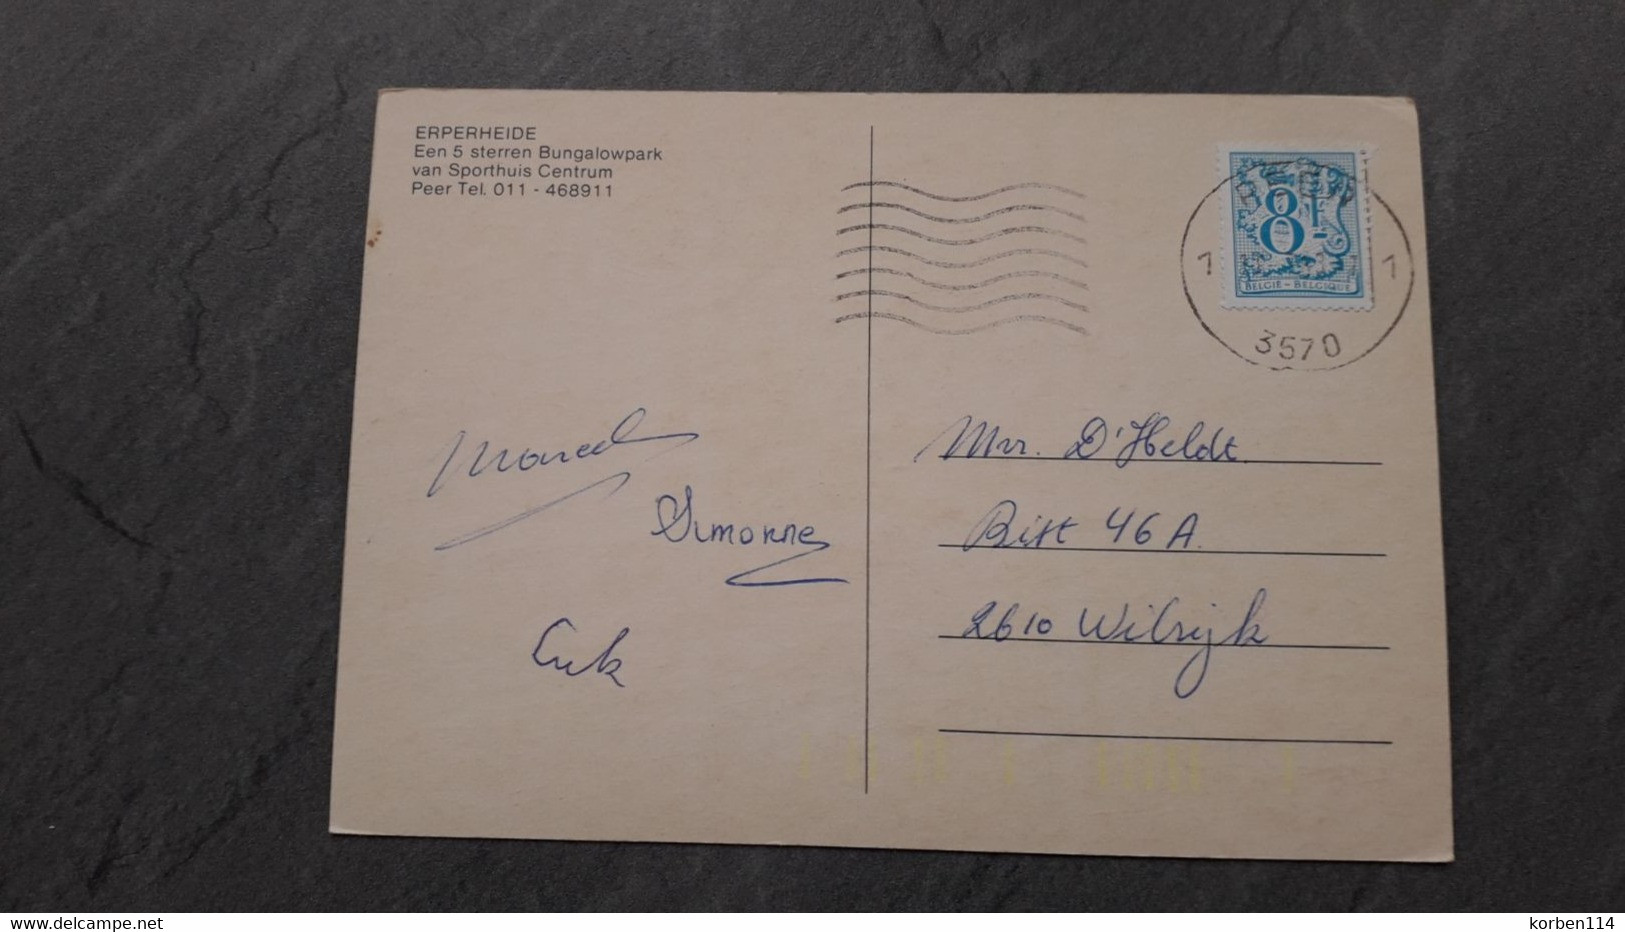 ERPERHEIDE
Een 5 sterren Bungalowpark
van Sporthuis Centrum
Peer Tel. 011 - 468911
8F-
BELGIË - BELGIQUE
1 1
3570
Marcel
Simonne
Mr. D'Heldt.
Bist 46 A.
2610 Wilrijk
www.delcampe.net
korben114